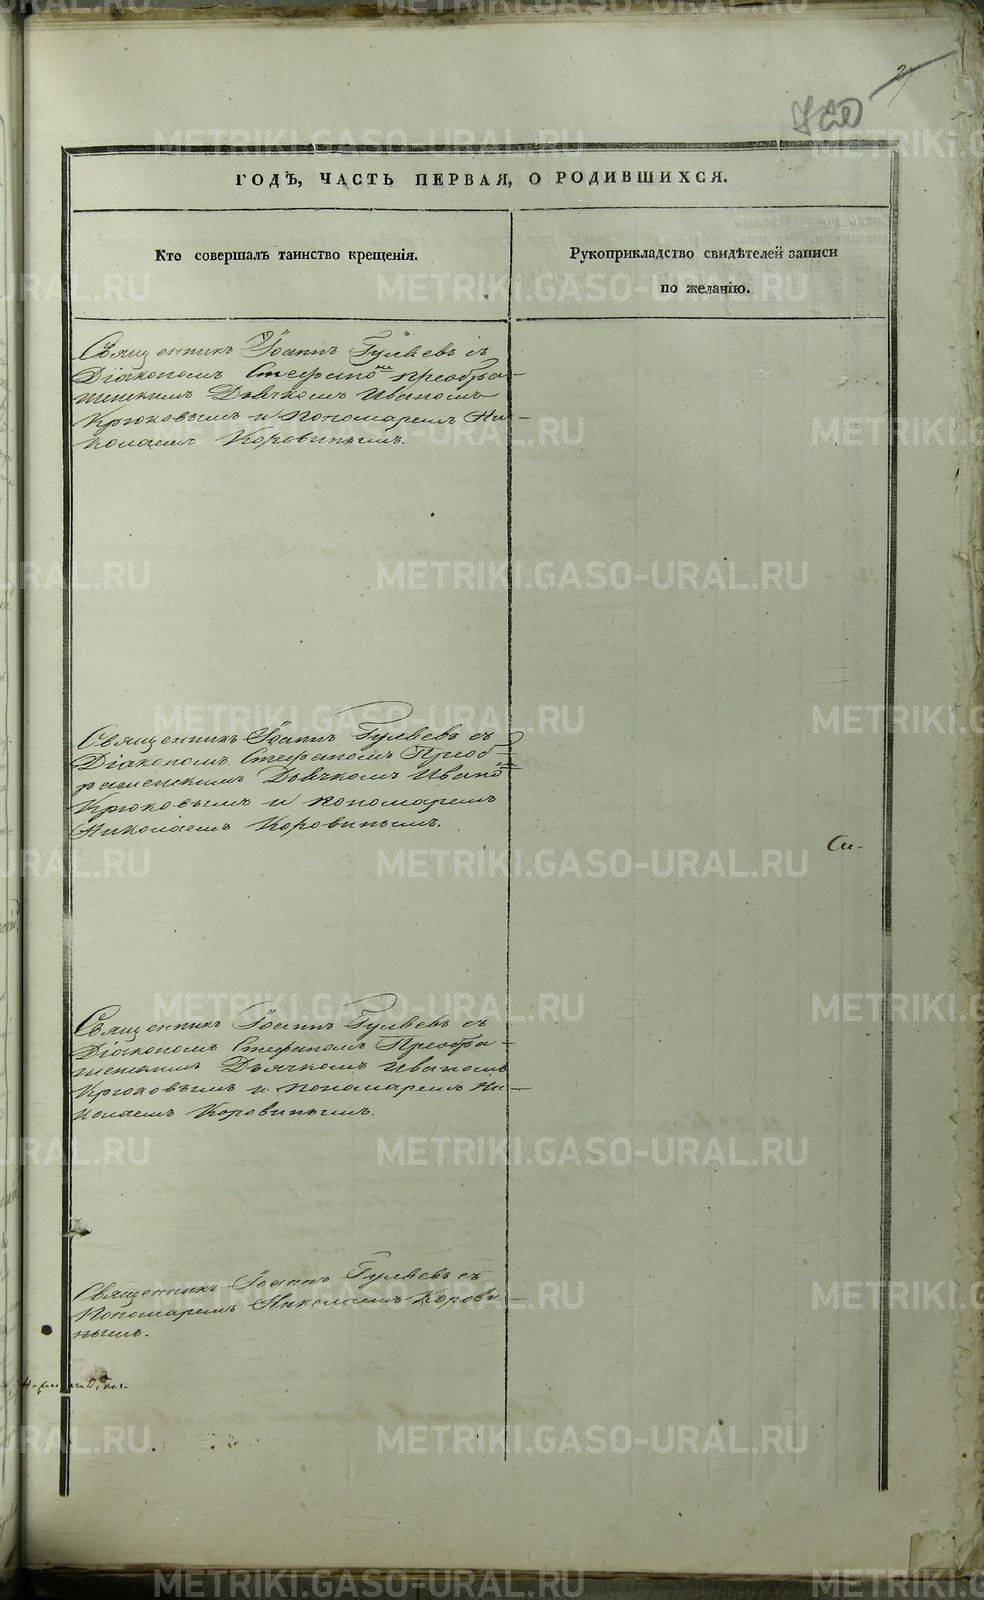 ГОДЪ, ЧАСТЬ ПЕРВАЯ, О РОДИВШИХСЯ.
Кто совершалъ таинство крещенія.
Рукоприкладство свидѣтелей записи
по желанію.
Священникъ Іоаннъ Гуляевъ съ
Діакономъ Стефаномъ Преобра-
женскимъ Дьячкомъ Иваномъ
Крюковымъ и Пономаремъ Ни-
колаемъ Коровинымъ.
Священникъ Іоаннъ Гуляевъ съ
Діакономъ Стефаномъ Преоб-
раженскимъ Дьячкомъ Иваномъ
Крюковымъ и пономаремъ
Николаемъ Коровинымъ.
Си-
Священникъ Іоаннъ Гуляевъ съ
Діакономъ Стефаномъ Преобра-
женскимъ Дьячкомъ Иваномъ
Крюковымъ и пономаремъ Ни-
колаемъ Коровинымъ.
Священникъ Іоаннъ Гуляевъ съ
Пономаремъ Николаемъ Корови-
нымъ.
METRIKI.GASO-URAL.RU